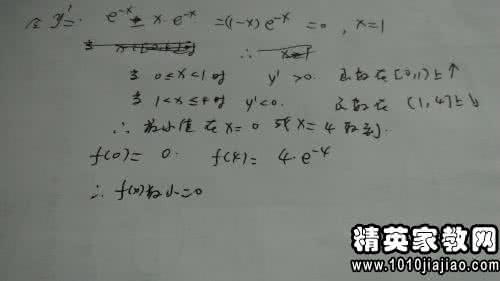 令 y' = e^{-x} - x·e^{-x} = (1-x)e^{-x} = 0, x=1
当 0≤x<1 时 y'>0. 函数在[0,1)上↑
当 1<x≤4 时 y'<0. 函数在(1,4]上↓
∴ 最小值在 x=0 或 x=4 取到.
f(0)= 0. f(4)= 4·e^{-4}
∴ f(x)最小=0
精英家教网
www.1010jiajiao.com